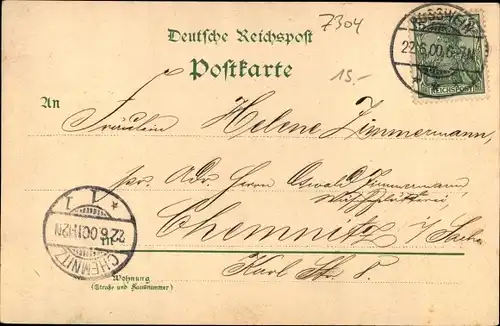 7304
Deutsche Reichspost
Postkarte
15.-
22.6.00.6-7N
REICHSPOST
An
Fräulein Helene Zimmermann,
pr. Adr. Herrn Oswald Zimmermann,
Chemnitz i/Sachs.
Karl Str.
in
1 1
22.6.00.11-12N
CHEMNITZ
Wohnung
(Straße und Hausnummer)